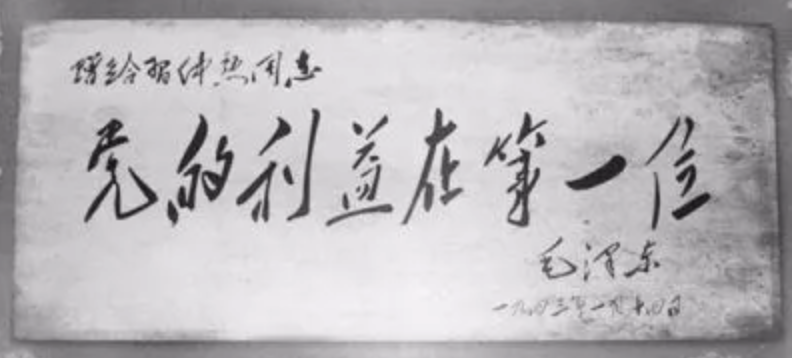 赠给習仲勋同志
党的利益在第一位
毛泽东
一九四三年一月十四日